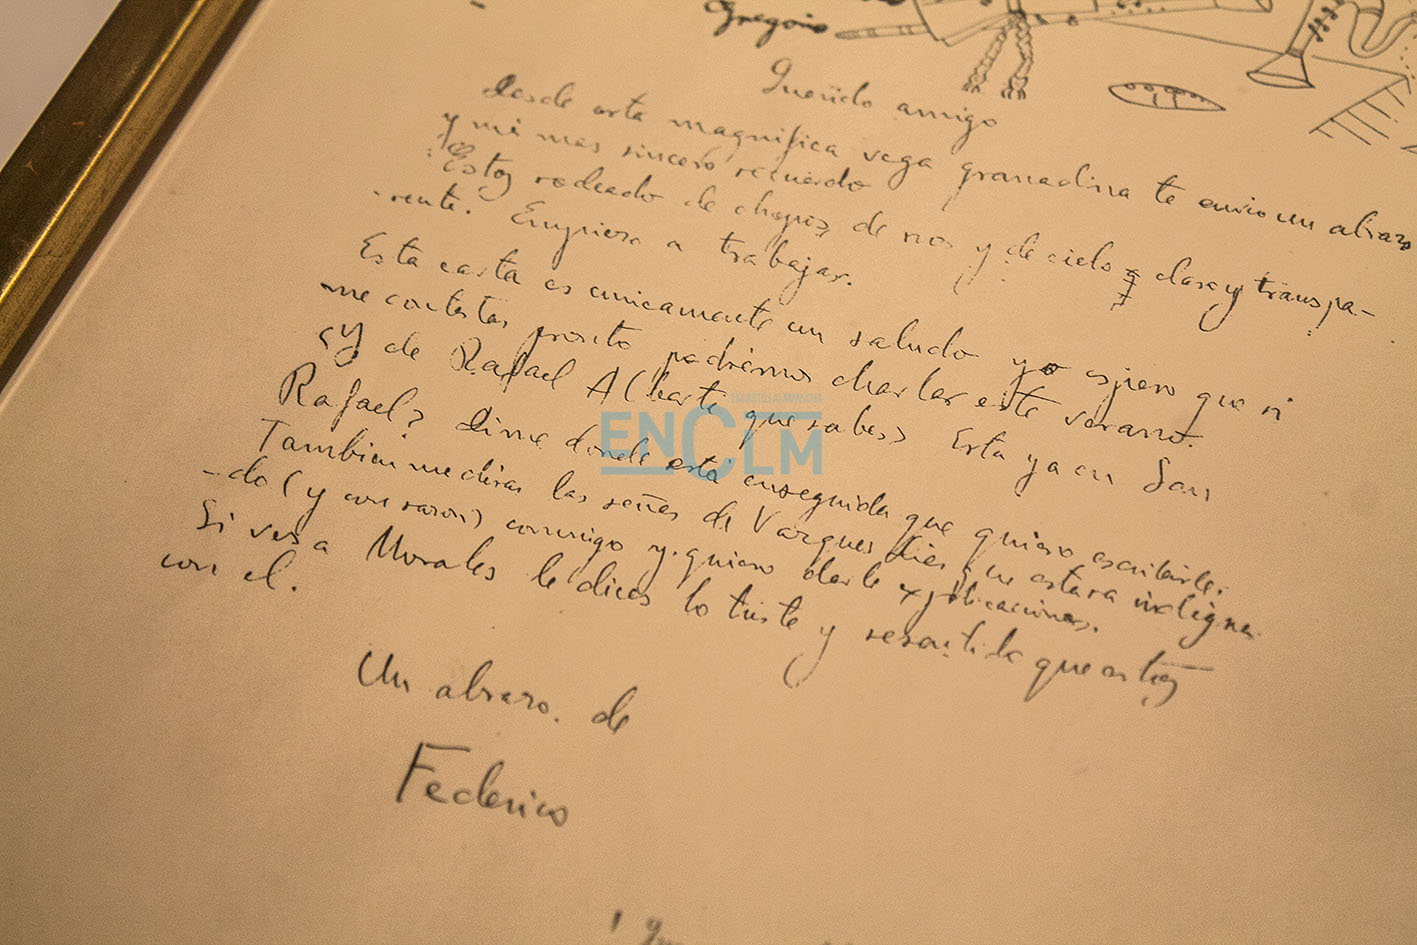 Gregorio
Querido amigo
Desde esta magnifica vega granadina te envio un abrazo
y mi mas sincero recuerdo
Estoy rodeado de chopos, de rios y de cielo claro y transpa-
-rente. Empiezo a trabajar.
Esta carta es unicamente un saludo y espero que si
me contestas pronto podremos charlar este verano.
¿Y de Rafael Alberti que sabes? Esta ya en San
Rafael? dime donde está enseguida que quiero escribirle.
Tambien me diras las señas de Vazques Diaz que estara indigna-
-do (y con razon) conmigo y quiero darle explicaciones.
Si ves a Morales le dices lo triste y resentido que estoy
con el.
Un abrazo. de
Federico
ENCASTILLALAMANCHA
ENCLM